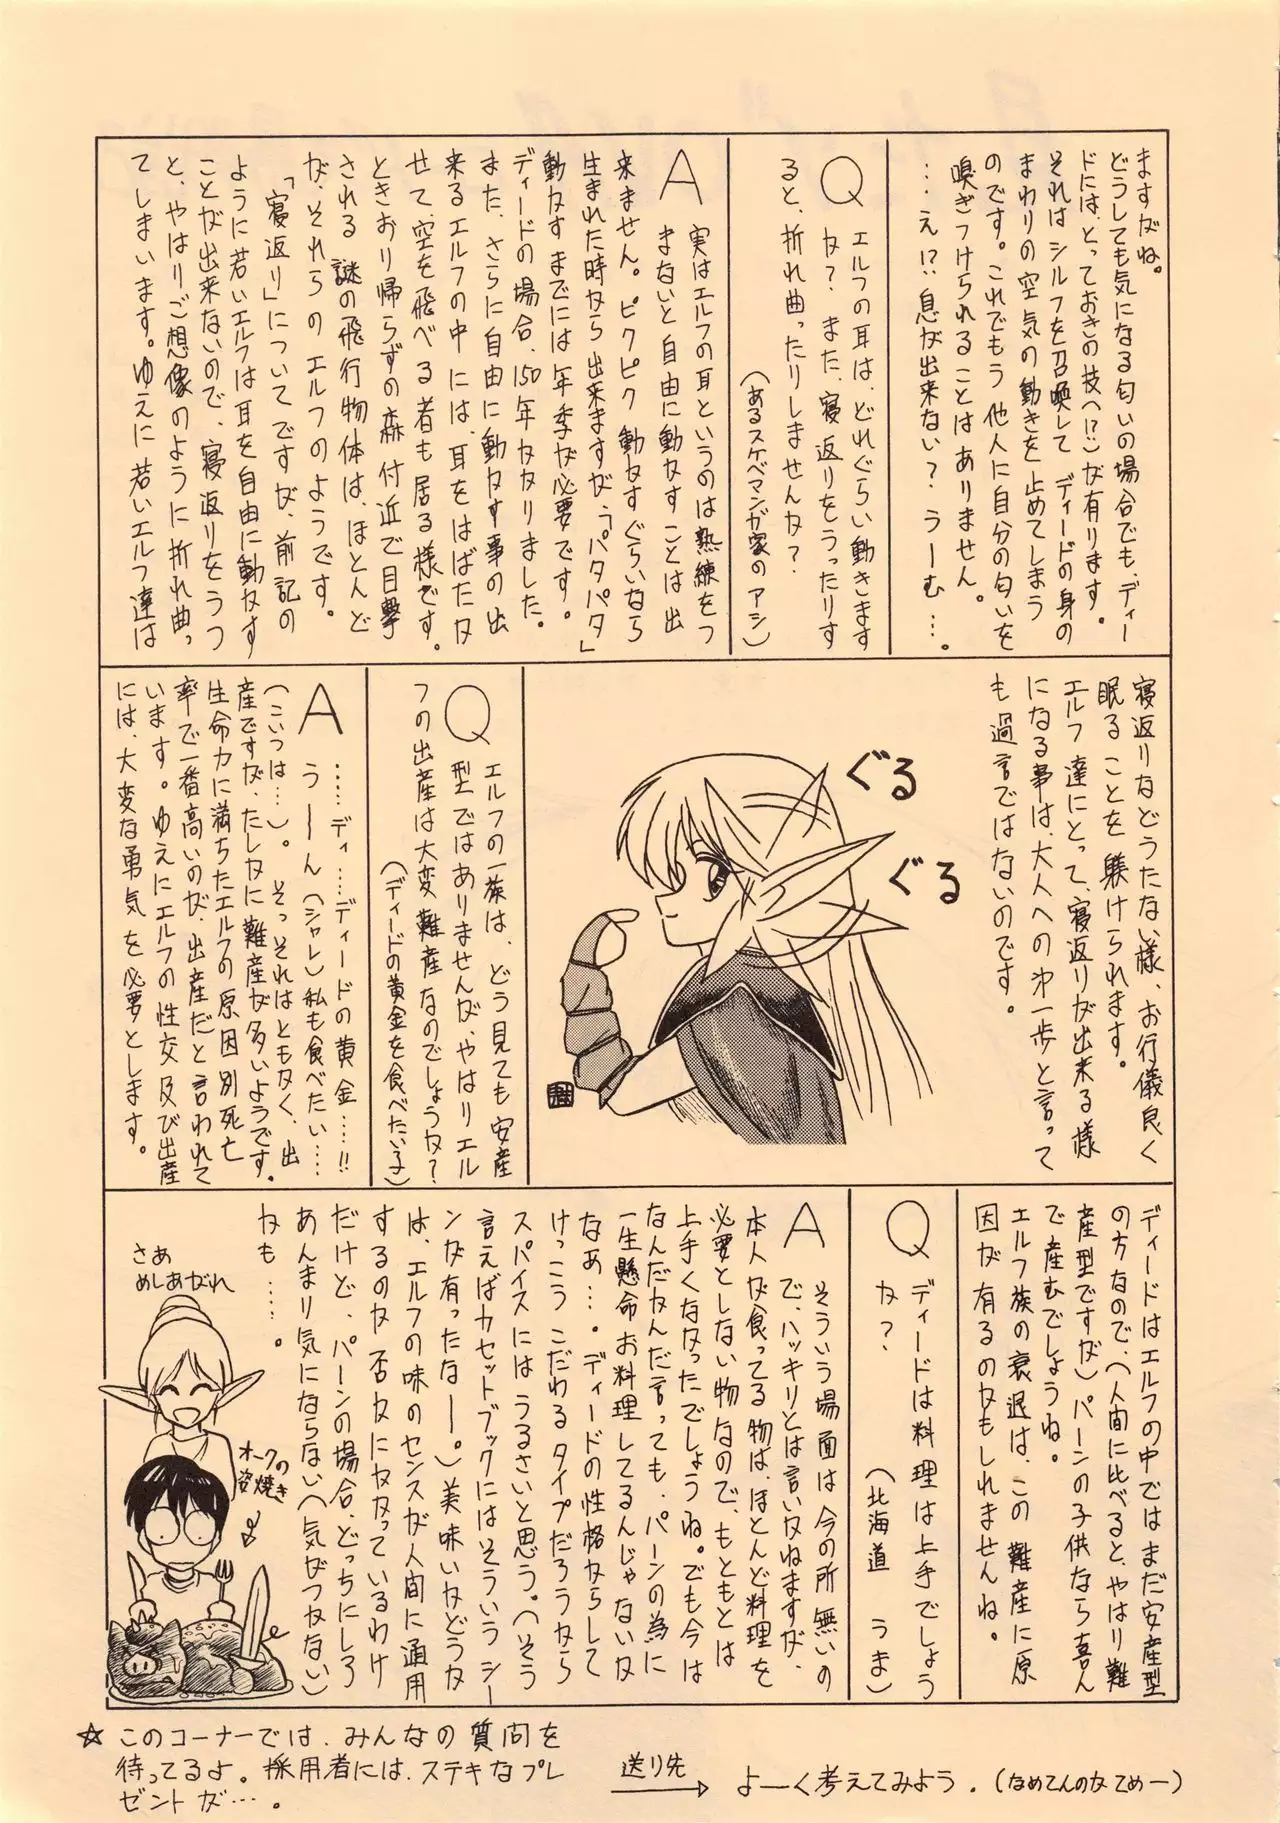 ますがね。
どうしても気になる匂いの場合でも、ディー
ドには、とっておきの技(!?)が有ります。
それはシルフを召喚して ディードの身の
まわりの空気の動きを止めてしまう
のです。これでもう他人に自分の匂いを
嗅ぎつけられることはありません。
…え!?息が出来ない?うーむ…。
Q エルフの耳は、どれぐらい動きます
か?また、寝返りをうったりす
ると、折れ曲ったりしませんか?
(あるスケベマンガ家のアシ)
A 実はエルフの耳というのは熟練をつ
まないと自由に動かすことは出
来ません。ピクピク動かすぐらいなら
生まれた時から出来ますが、「パタパタ」
動かすまでには年季が必要です。
ディードの場合、150年かかりました。
また、さらに自由に動かす事の出
来るエルフの中には、耳をはばたか
せて、空を飛べる者も居る様です。
ときおり帰らずの森付近で目撃
される 謎の飛行物体は、ほとんど
が、それらのエルフのようです。
「寝返り」についてですが、前記の
ように若いエルフは耳を自由に動かす
ことが出来ないので、寝返りをうつ
と、やはりご想像のように折れ曲っ
てしまいます。ゆえに若いエルフ達は
寝返りなどうたない様、お行儀良く
眠ることを躾けられます。
エルフ達にとって、寝返りが出来る様
になる事は、大人への第一歩と言って
も過言ではないのです。
ぐる
ぐる
Q エルフの一族は、どう見ても安産
型ではありませんが、やはりエル
フの出産は大変難産なのでしょうか?
(ディードの黄金を食べたい子)
A ……ディ……ディードの黄金……!!
うーん(シャレ)私も食べたい……
(こいつは…)。そっそれはともかく、出
産ですが、たしかに難産が多いようです。
生命力に満ちたエルフの原因別死亡
率で一番高いのが、出産だと言われて
います。ゆえにエルフの性交及び出産
には、大変な勇気を必要とします。
ディードはエルフの中ではまだ安産型
の方なので、(人間に比べると、やはり難
産型ですが)パーンの子供なら喜ん
で産むでしょうね。
エルフ族の衰退は、この難産に原
因が有るのかもしれませんね。
Q ディードは料理は上手でしょう
か?
(北海道 うま)
A そういう場面は今の所無いの
で、ハッキリとは言いかねますが、
本人が食ってる物は、ほとんど料理を
必要としない物なので、もともとは
上手くなかったでしょうね。でも今は
なんだかんだ言っても、パーンの為に
一生懸命お料理してるんじゃないか
なぁ…。ディードの性格からして
けっこうこだわるタイプだろうから
スパイスにはうるさいと思う。(そう
言えばカセットブックにはそういう シー
ンが有ったなー。)美味いかどうか
は、エルフの味のセンスが人間に通用
するのか否かにかかっているわけ
だけど、パーンの場合、どっちにしろ
あんまり気にならない(気がつかない)
かも……。
さあ
めしあがれ
オークの
姿焼き
☆ このコーナーでは、みんなの質問を
待ってるよ。採用者には、ステキなプレ
ゼントが…。
送り先
よーく考えてみよう。(なめてんのかてめー)